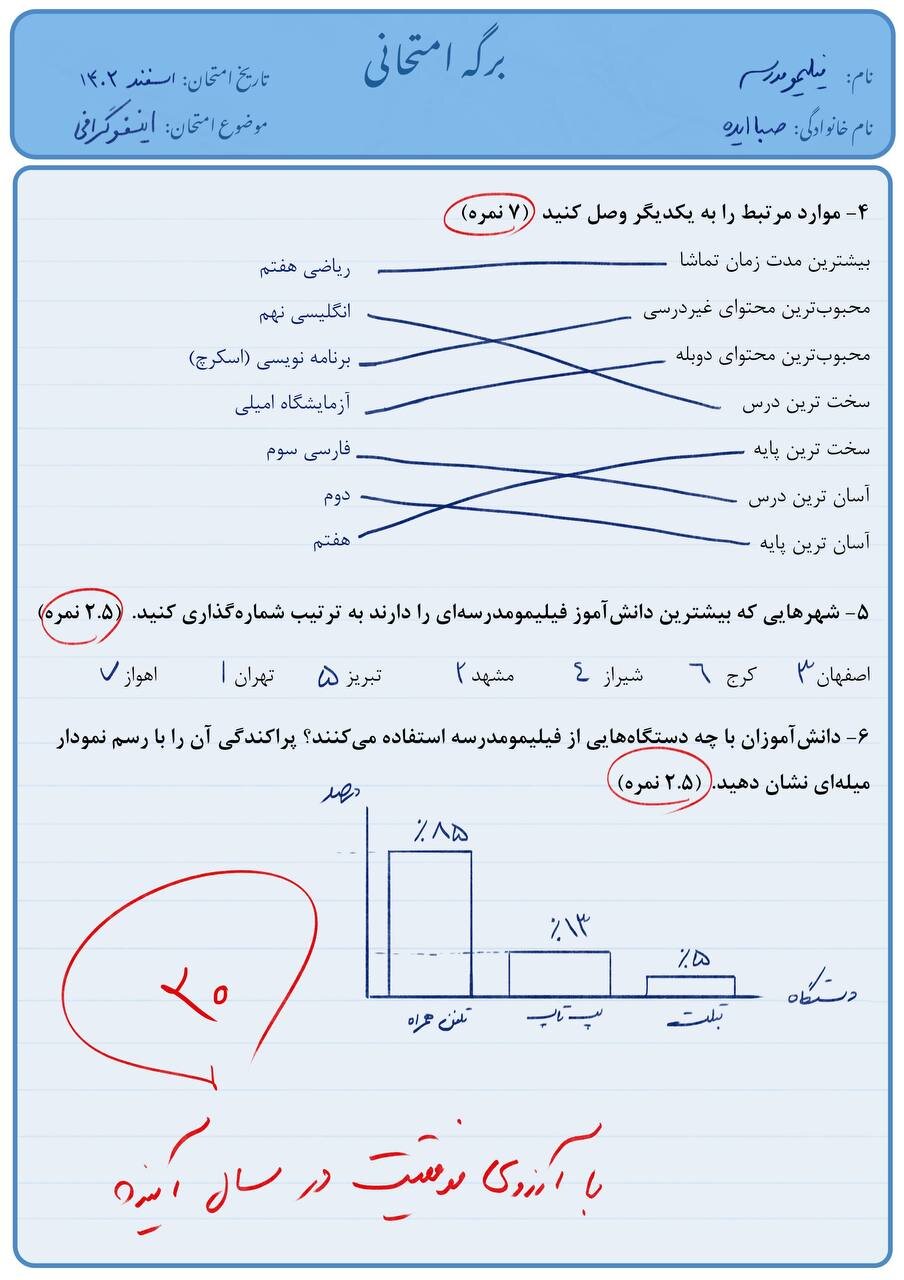 برگه امتحانی
نام: فیلیمومدرسه
تاریخ امتحان: اسفند ۱۴۰۲
نام خانوادگی: صبا ایده
موضوع امتحان: اینفوگرافی
۴- موارد مرتبط را به یکدیگر وصل کنید (۷ نمره)
بیشترین مدت زمان تماشا ریاضی هفتم
محبوب‌ترین محتوای غیردرسی انگلیسی نهم
محبوب‌ترین محتوای دوبله برنامه نویسی (اسکرچ)
سخت ترین درس آزمایشگاه امیلی
سخت ترین پایه فارسی سوم
آسان ترین درس دوم
آسان ترین پایه هفتم
۵- شهرهایی که بیشترین دانش‌آموز فیلیمومدرسه‌ای را دارند به ترتیب شماره‌گذاری کنید. (۲.۵ نمره)
اصفهان ۳ کرج ۶ شیراز ۴ مشهد ۲ تبریز ۵ تهران ۱ اهواز ۷
۶- دانش‌آموزان با چه دستگاه‌هایی از فیلیمومدرسه استفاده می‌کنند؟ پراکندگی آن را با رسم نمودار
میله‌ای نشان دهید. (۲.۵ نمره)
درصد
٪۸۵
٪۱۳
٪۵
دستگاه
تلفن همراه لپ تاپ تبلت
۲۰
با آرزوی موفقیت در سال آینده